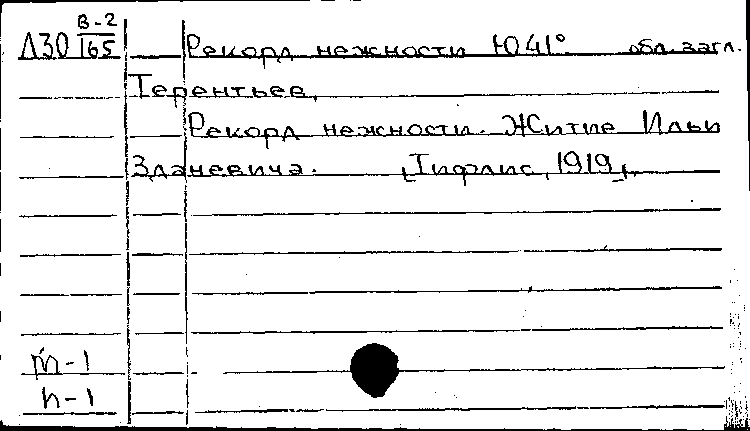 Л30 В-2/165 Рекорд нежности Ю41° обл. загл.
Терентьев,
Рекорд нежности. Житие Ильи
Зданевича. [Тифлис, 1919].
m-1
h-1